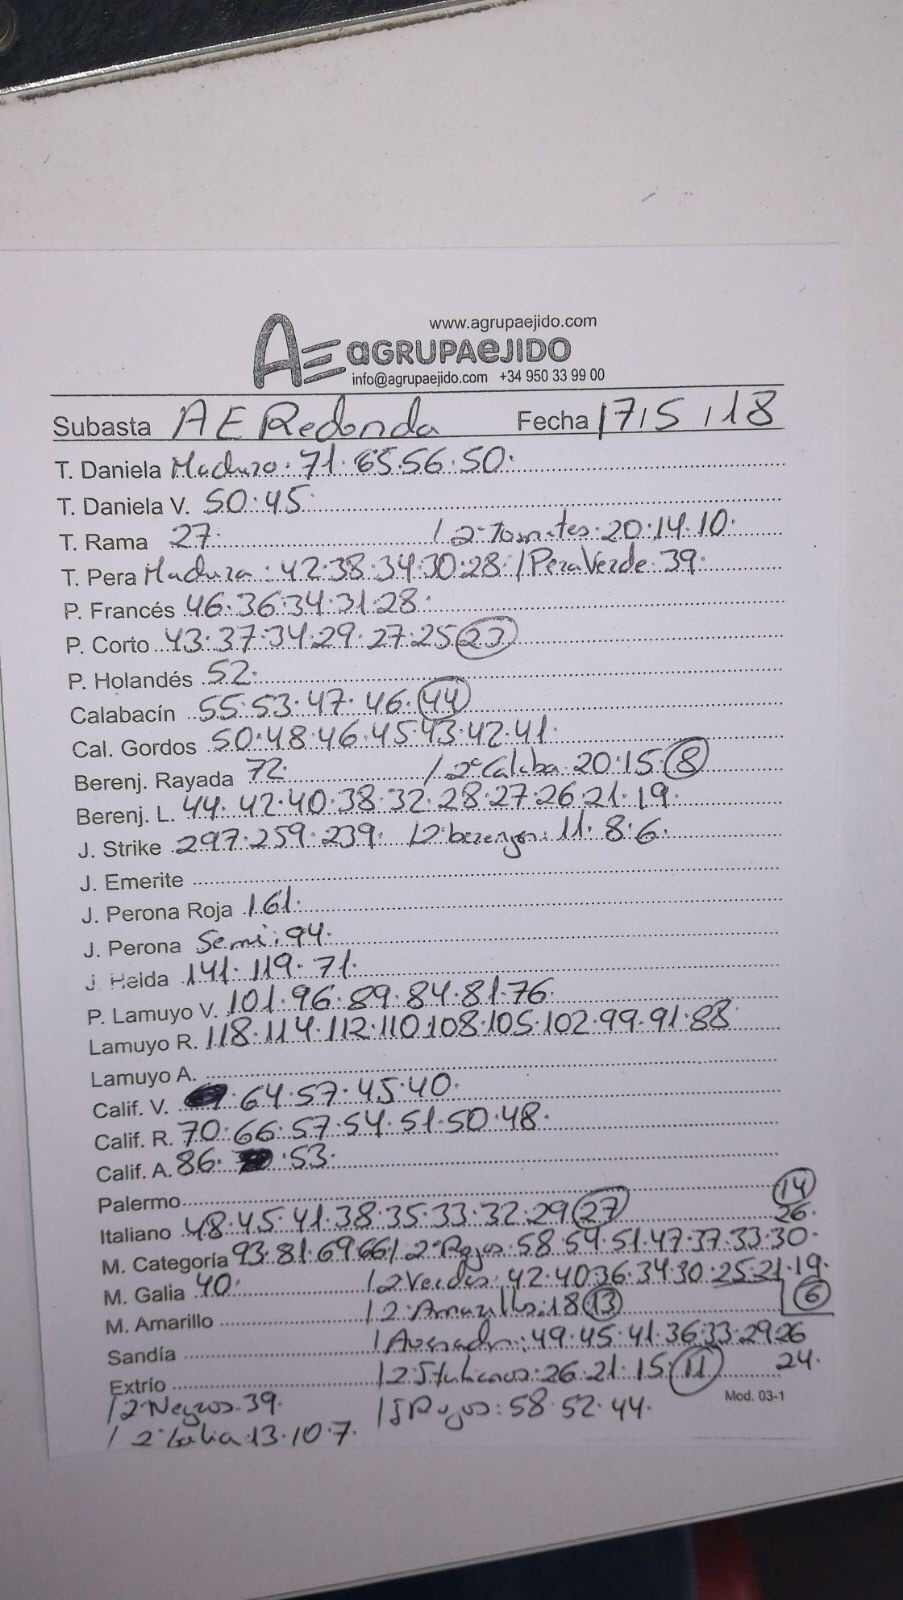 www.agrupaejido.com
AE aGRUPAeJIDO
info@agrupaejido.com +34 950 33 99 00
Subasta AE Redonda Fecha 17/5/18
T. Daniela Maduro. 71. 65.56.50.
T. Daniela V. 50.45.
T. Rama 27. / 2ª Tomates. 20.14.10.
T. Pera Madura: 42.38.34.30.28. / Pera Verde. 39.
P. Francés 46.36.34.31.28.
P. Corto 43.37.34.29.27.25 23
P. Holandés 52.
Calabacín 55.53.47.46. 44
Cal. Gordos 50.48.46.45.43.42.41.
Berenj. Rayada 72. / 2ª Calaba. 20.15. 8
Berenj. L. 44. 42.40.38.32.28.27.26.21.19.
J. Strike 297.259.239. / 2 berengen: 11.8.6.
J. Emerite
J. Perona Roja 161.
J. Perona Semi: 94.
J. Helda 141. 119. 71.
P. Lamuyo V. 101.96.89.84.81.76.
Lamuyo R. 118.114.112.110.108.105.102.99.91.88
Lamuyo A.
Calif. V. 64.57.45.40.
Calif. R. 70.66.57.54.51.50.48.
Calif. A. 86. 53.
Palermo 14
Italiano 48.45.41.38.35.33.32.29 27 26.
M. Categoría 93.81.69.66 / 2ª Rojos: 58.54.51.47.37.33.30.
M. Galia 40. / 2 Verdes: 42.40.36.34.30.25.21.19.
M. Amarillo / 2 Amarillos: 18 13 6
Sandía / Asurado: 49.45.41.36.33.29.26
Extrío / 2 Italianos: 26.21.15. 11 24.
/ 2 Negros. 39. / J Rojos: 58.52.44. Mod. 03-1
/ 2ª Galia. 13.10.7.